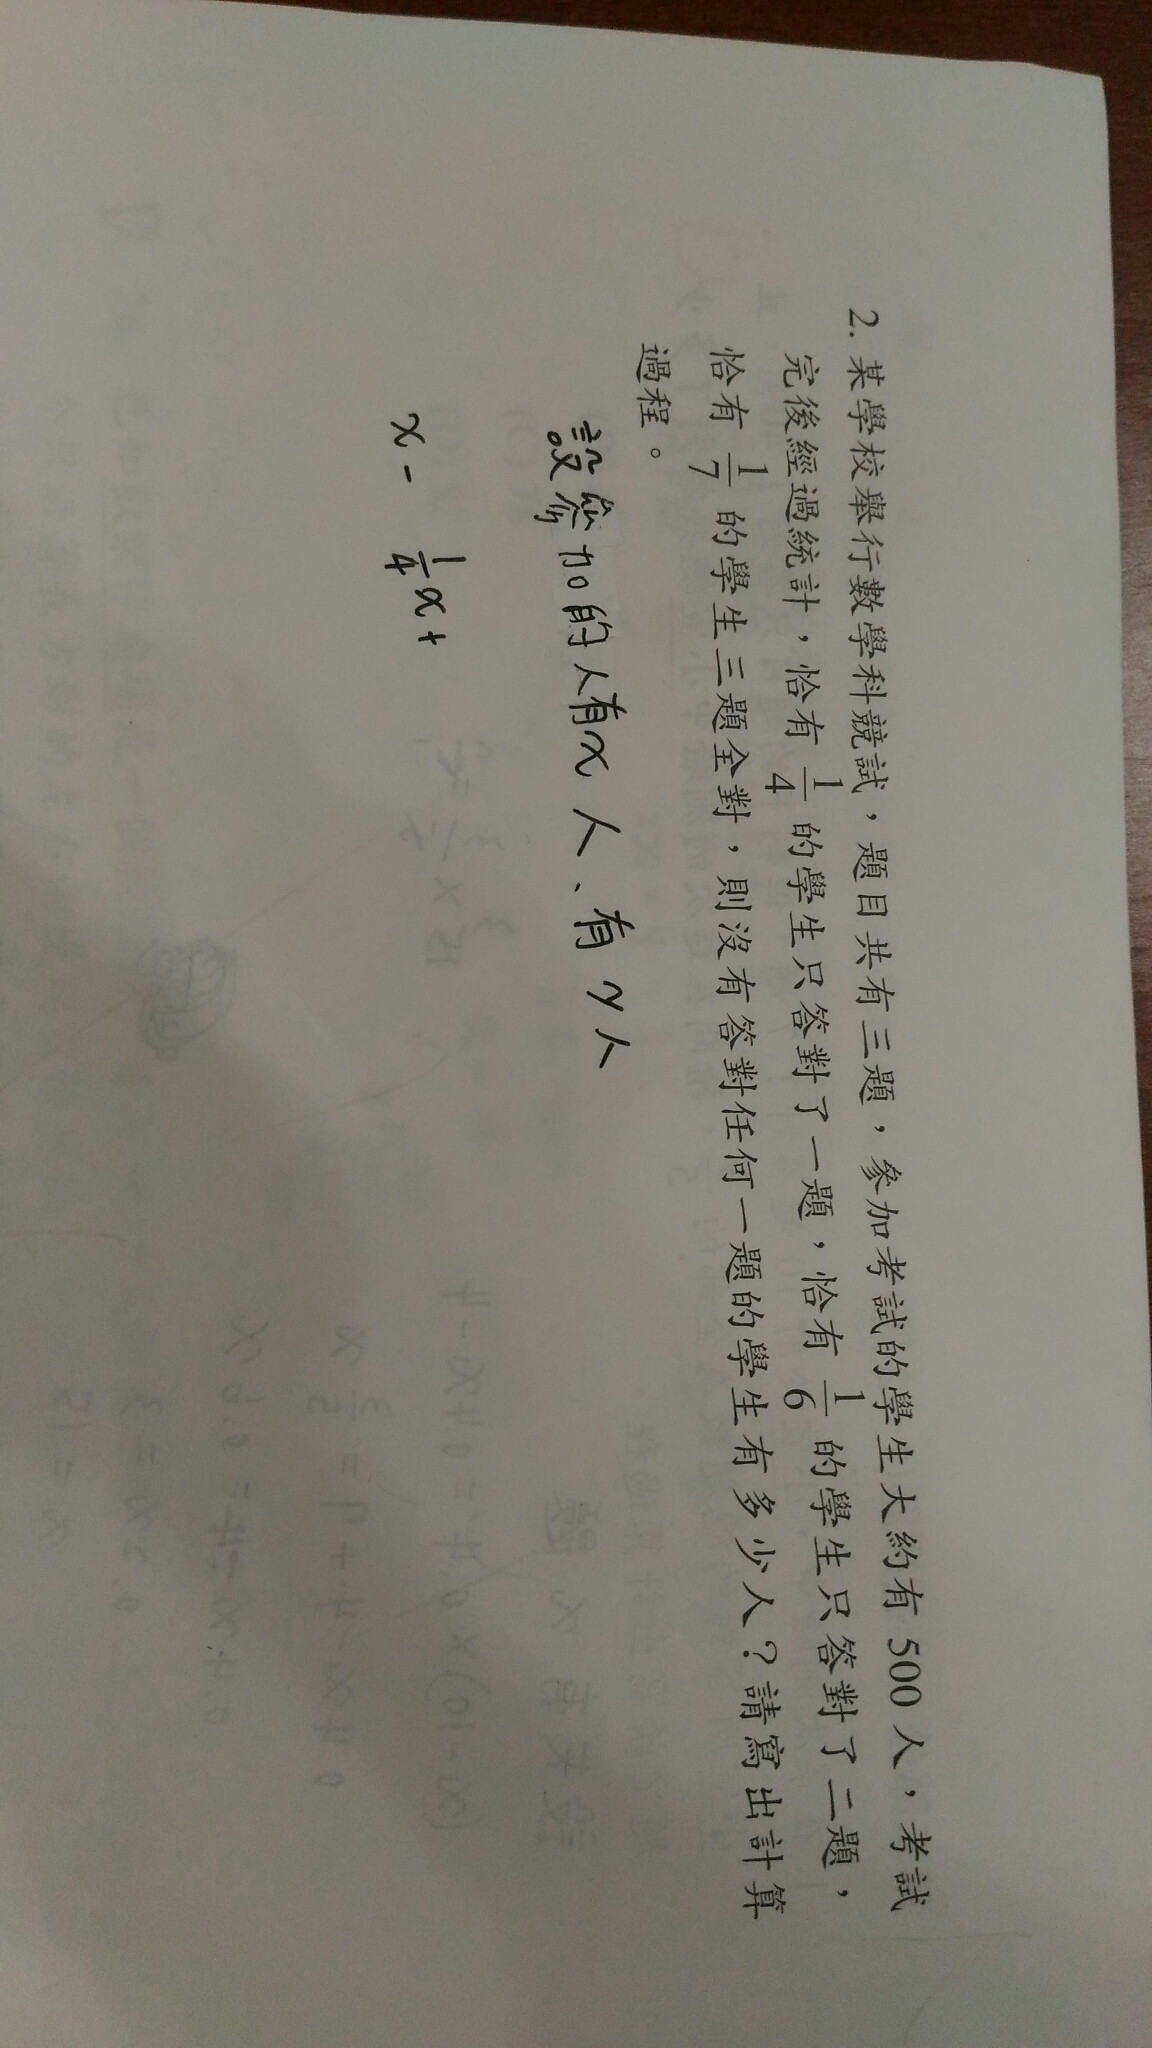 2. 某學校舉行數學科競試，題目共有三題，參加考試的學生大約有 500 人，考試
完後經過統計，恰有 1/4 的學生只答對了一題，恰有 1/6 的學生只答對了二題，
恰有 1/7 的學生三題全對，則沒有答對任何一題的學生有多少人？請寫出計算
過程。
設參加的人有x人、有y人
x - 1/4x+